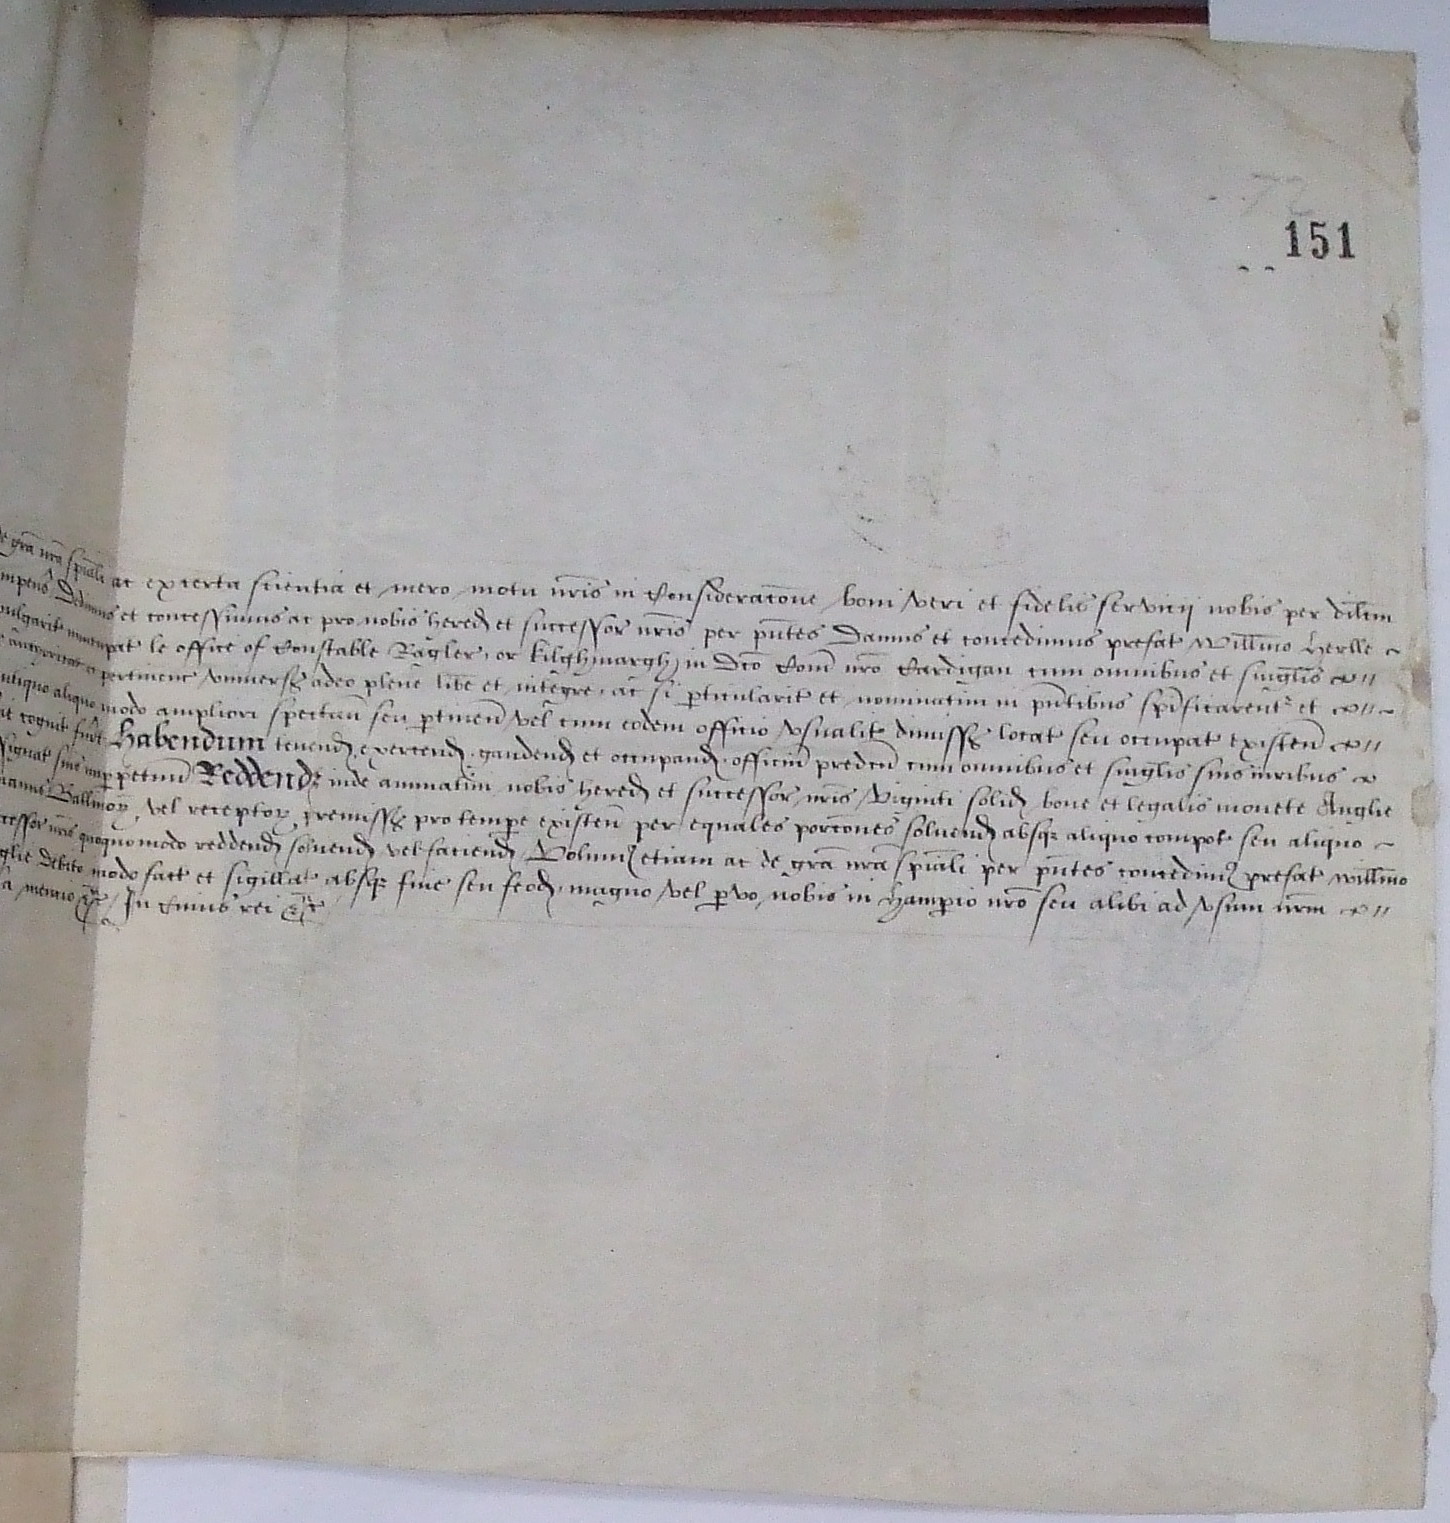 151
gra nra spiali ac ex certa scientia et mero motu nris in Consideracone boni veri et fidelis servicij nobis per dilcm
Dedimus et concessimus ac pro nobis hered et successor nris per pntes Damus et concedimus prefat Willmo herlle
vulgarit nuncupat le office of Constable Ragler or kilghmargh in dco Com nro Cardigan cum omnibus et singlis
pertinenc vniuers adeo plene libe et integre ac si pticularit et nominatim in pntibus spificarent et
aliquo modo ampliori spectan seu ptinen vel cum eodem officio vsualit dimiss locat seu occupat existen
Habendum tenend exercend gaudend et occupand officiu predcm cum omnibus et singlis suis iuribus
imppetuu Reddend inde annuatim nobis hered et successor nris viginti solid bone et legalis monete Anglie
Ballivor vel receptor premiss pro tempe existen per equales porcones solvend absq aliquo compot seu aliquo
nris quoquomodo reddend solvend vel faciend Volum etiam ac de gra nra spiali per pntes concedim prefat willmo
debito modo fact et sigillat absq fine seu feod magno vel pvo nobis in hampio nro seu alibi ad vsum nrm
mencio &c In Cuius rei &c